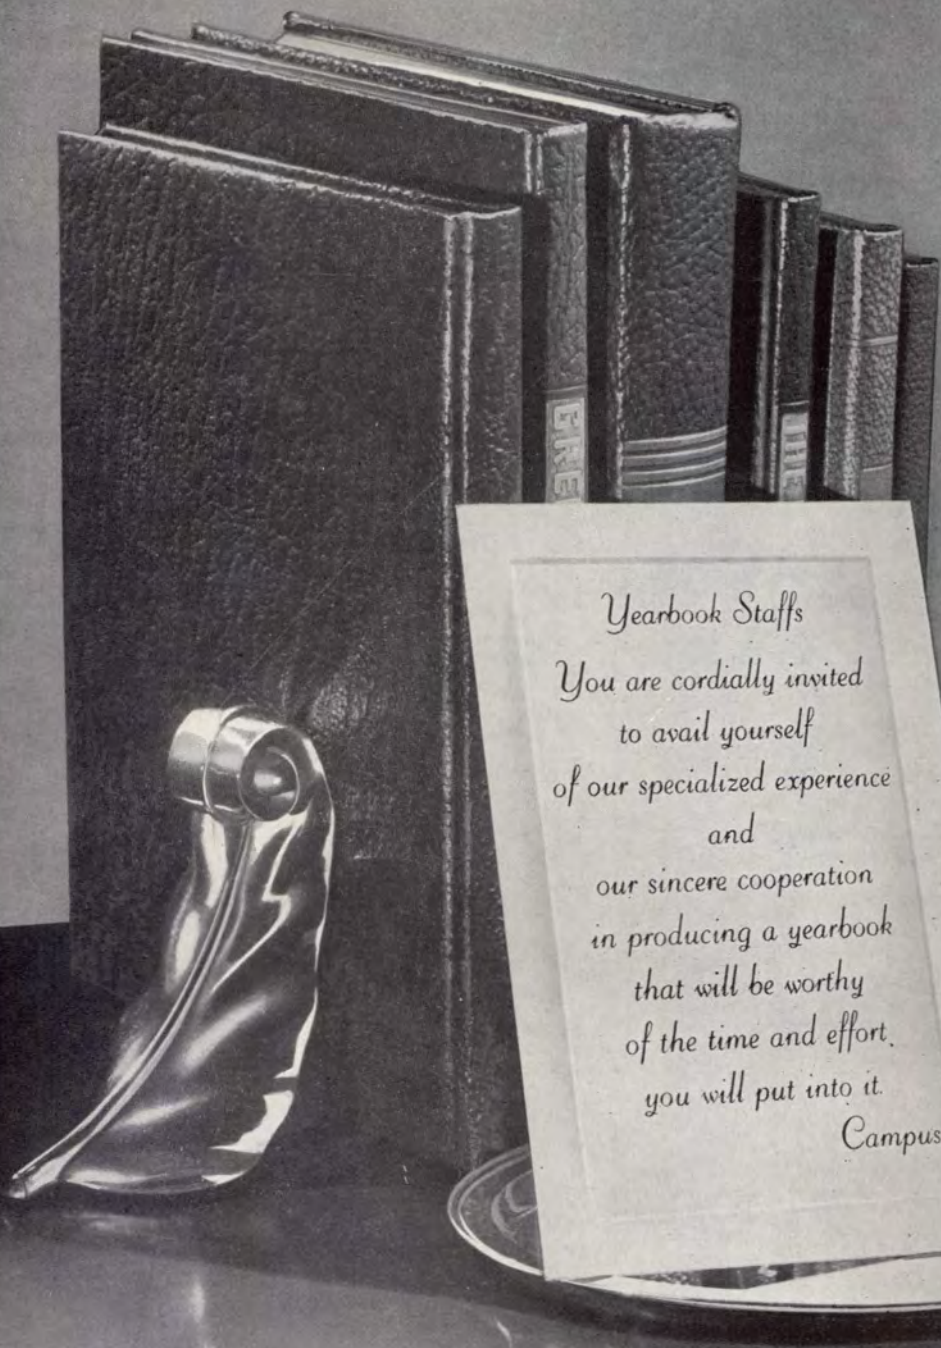 Yearbook Staffs
You are cordially invited
to avail yourself
of our specialized experience
and
our sincere cooperation
in producing a yearbook
that will be worthy
of the time and effort
you will put into it.
Campus